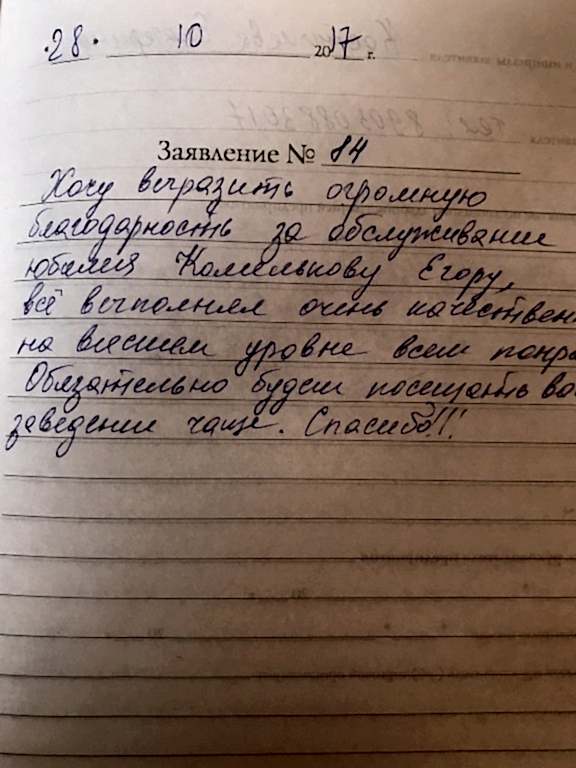 "28" 10 2017 г.
Заявление № 84
Хочу выразить огромную
благодарность за обслуживание
юбилея Комилькову Егору,
всё выполнял очень качествен
на высшем уровне всем понра
Обязательно будем посещать ва
заведение чаще. Спасибо!!!